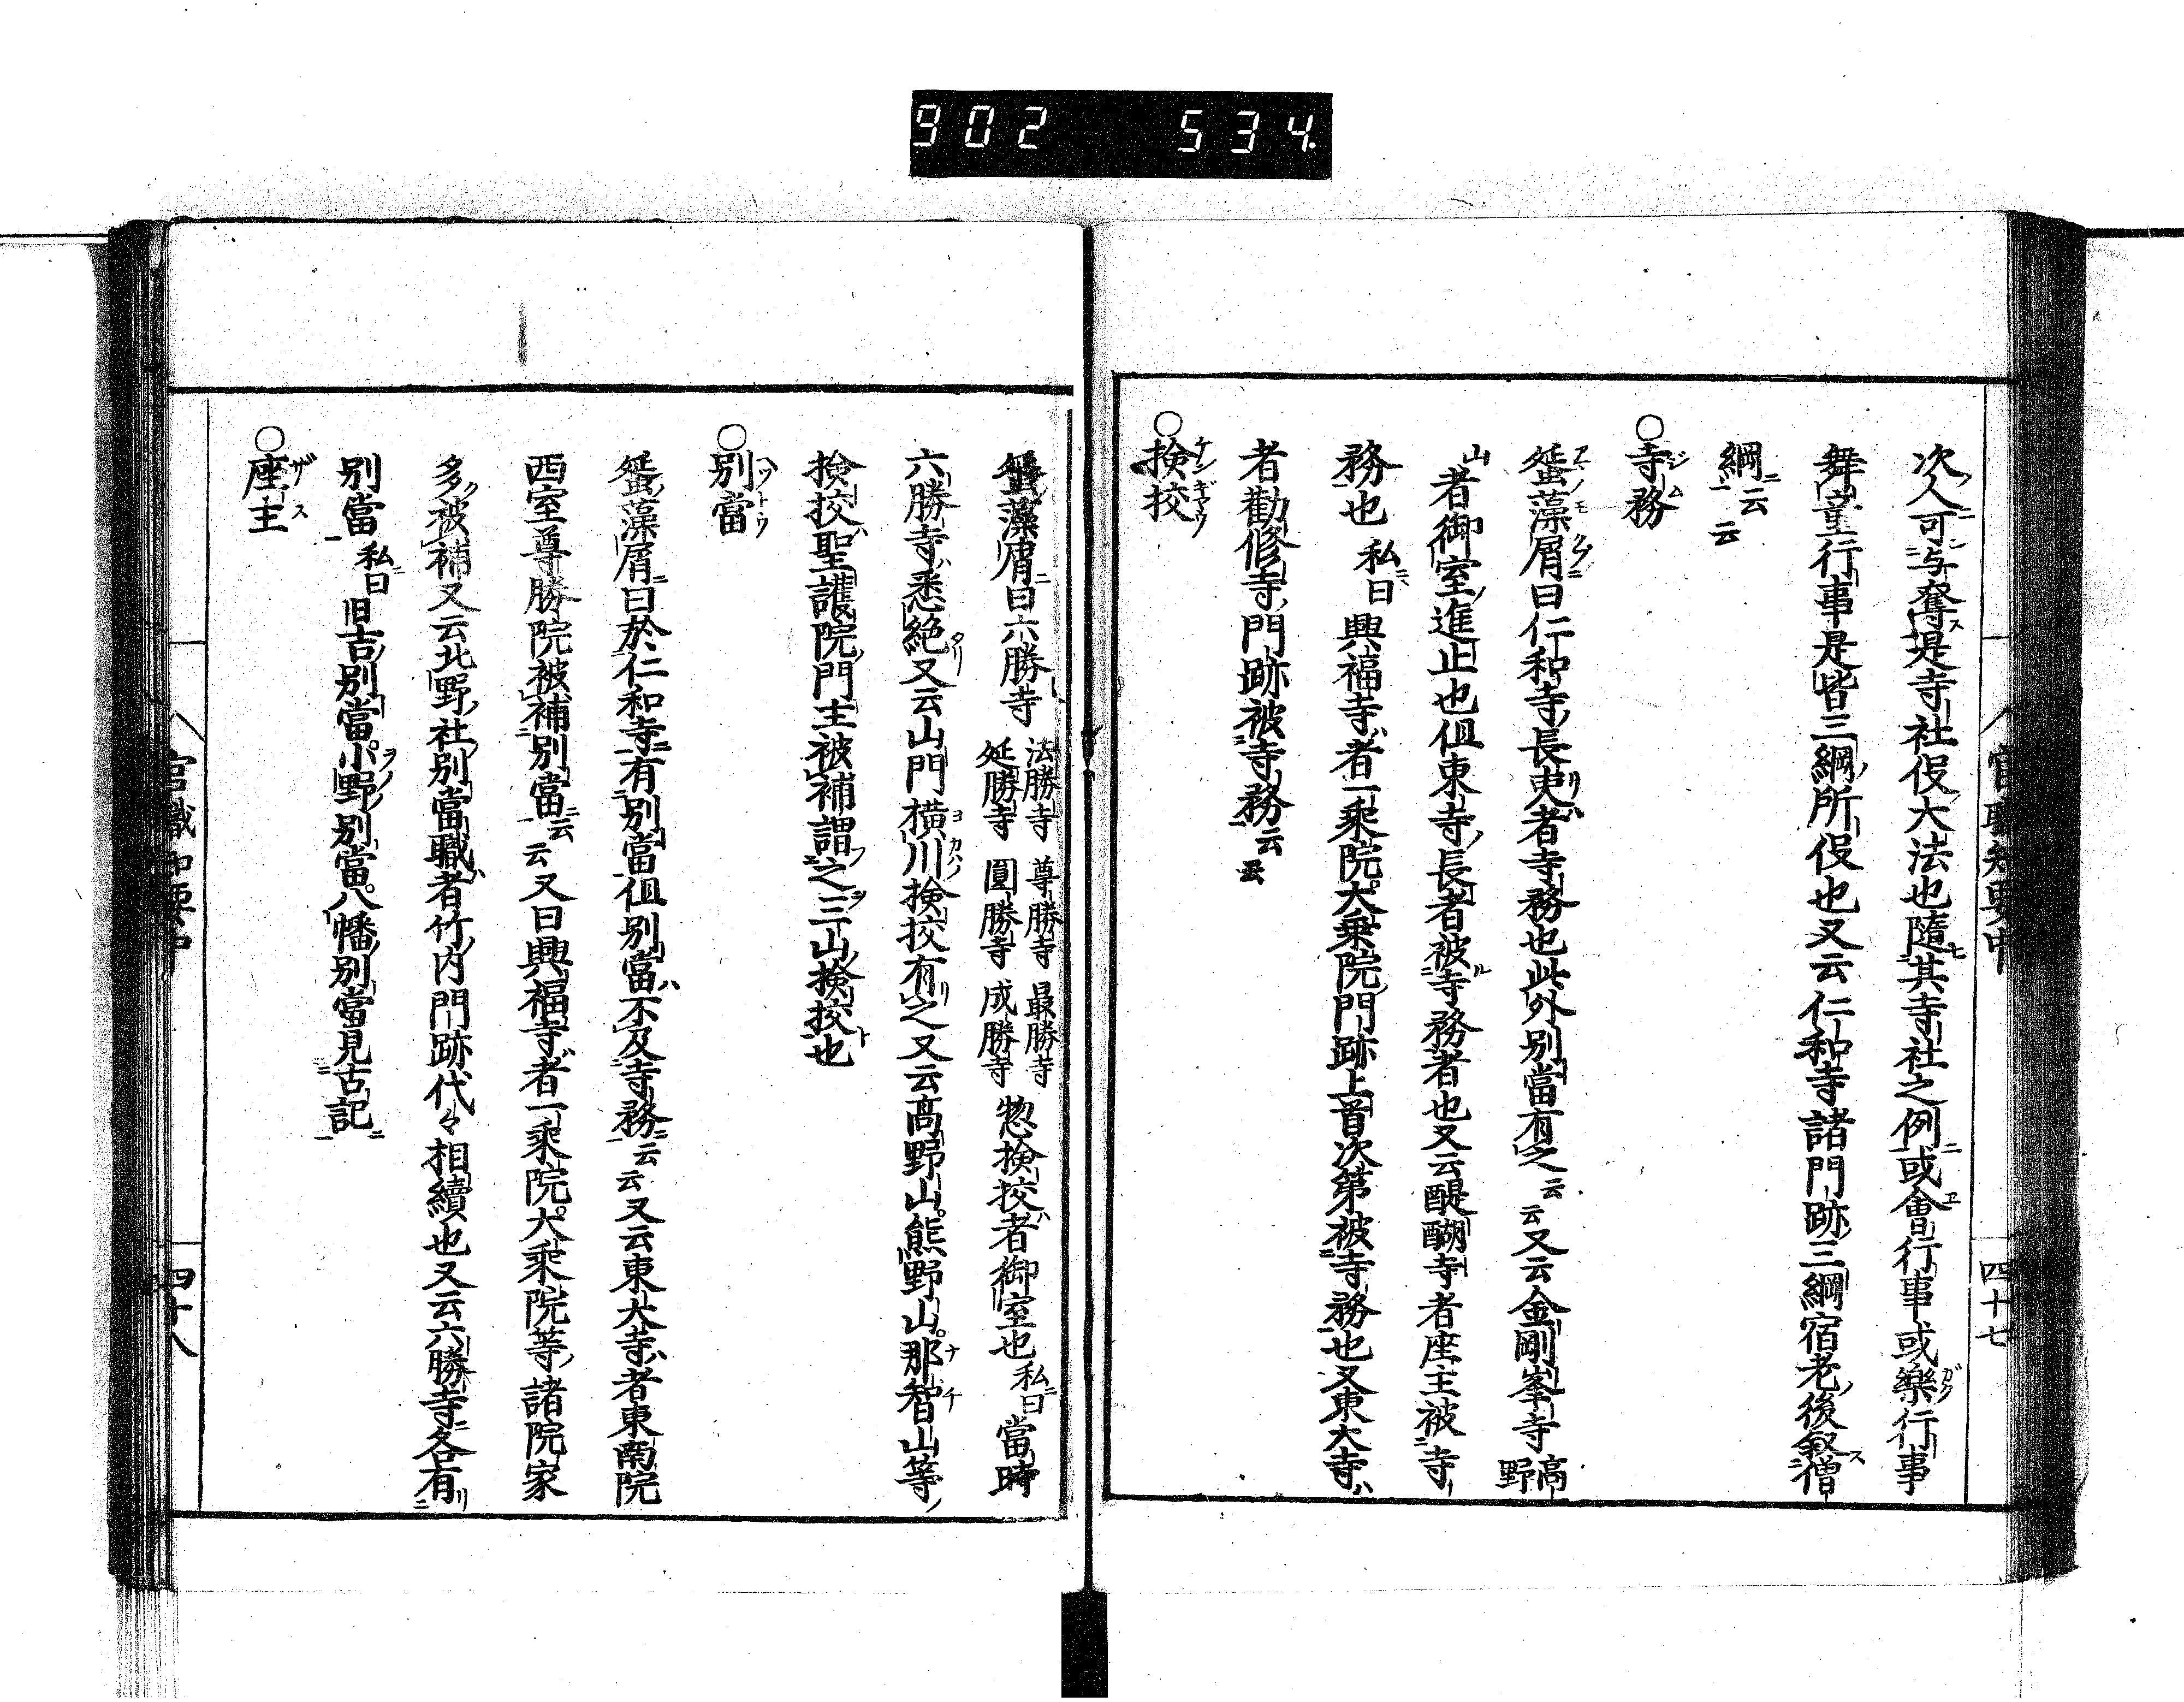 902 534
官職知要中 四十七
次人可与奪是寺社役大法也隨其寺社之例或會行事或樂行事
舞童行事是皆三綱所役也又云仁和寺諸門跡三綱宿老後叙僧
綱云云
○寺務
蜑藻屑曰仁和寺長吏者寺務也此外別當有之云云又云金剛峯寺高野
山者御室進止也但東寺長者被寺務者也又云醍醐寺者座主被寺
務也私曰興福寺者一乘院大乗院門跡上首次第被寺務也又東大寺
者勸修寺門跡被寺務云云
○撿挍
蜑藻屑曰六勝寺法勝寺尊勝寺最勝寺延勝寺圓勝寺成勝寺惣撿挍者御室也私曰當時
六勝寺悉絶又云山門橫川撿挍有之又云高野山熊野山那智山等
撿挍聖護院門主被補謂之三山撿挍也
○別當
蜑藻屑曰於仁和寺有別當但別當不及寺務云云又云東大寺者東南院
西室尊勝院被補別當云云又曰興福寺者一乘院大乘院等諸院家
多被補又云北野社別當職者竹内門跡代々相續也又云六勝寺各有
別當私曰日吉別當小野別當八幡別當見古記
○座主
官職知要中 四十八